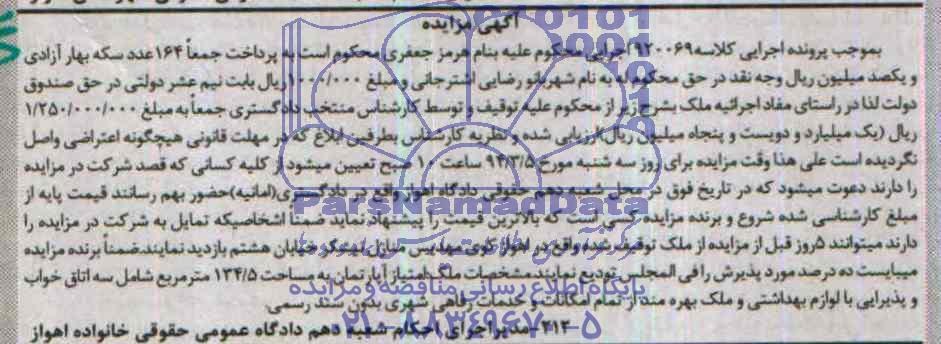 آگهی مزایده
بموجب پرونده اجرایی کلاسه ۹۲۰۰۶۹ اجرایی محکوم علیه بنام هرمز جعفری محکوم است به پرداخت جمعاً ۱۶۴ عدد سکه بهار آزادی
و یکصد میلیون ریال وجه نقد در حق محکوم له به نام شهربانو رضایی اشترجانی و مبلغ ریال بابت نیم عشر دولتی در حق صندوق
دولت لذا در راستای مفاد اجرائیه ملک بشرح زیر از محکوم علیه توقیف و توسط کارشناس منتخب دادگستری جمعاً به مبلغ ۱/۲۵۰/۰۰۰/۰۰۰
ریال (یک میلیارد و دویست و پنجاه میلیون ریال) ارزیابی شده و نظریه کارشناس بطرفین ابلاغ که در مهلت قانونی هیچگونه اعتراضی واصل
نگردیده است علی هذا وقت مزایده برای روز سه شنبه مورخ ۹۴/۳/۵ ساعت ۱۰ صبح تعیین میشود از کلیه کسانی که قصد شرکت در مزایده
را دارند دعوت میشود که در تاریخ فوق در محل شعبه دهم حقوقی دادگاه اهواز واقع در دادگستری (امانیه) حضور بهم رسانند قیمت پایه از
مبلغ کارشناسی شده شروع و برنده مزایده کسی است که بالاترین قیمت را پیشنهاد نماید ضمناً اشخاصیکه تمایل به شرکت در مزایده را
دارند میتوانند ۵ روز قبل از مزایده از ملک توقیف شده واقع در اهواز کوی مهدیس خیابان هشتم بازدید نمایند ضمناً برنده مزایده
میبایست ده درصد مورد پذیرش را فی المجلس تودیع نمایند مشخصات ملک: امتیاز آپارتمان به مساحت ۱۳۴/۵ مترمربع شامل سه اتاق خواب
و پذیرایی با لوازم بهداشتی و ملک بهره مند از تمام امکانات و خدمات رفاهی شهری بدون سند رسمی.
۲۱۲- مدیر اجرای احکام شعبه دهم دادگاه عمومی حقوقی خانواده اهواز
ParsNamadData
پایگاه اطلاع رسانی مناقصه و مزایده
۰۲۱-۸۸۳۴۹۶۷۰-۵